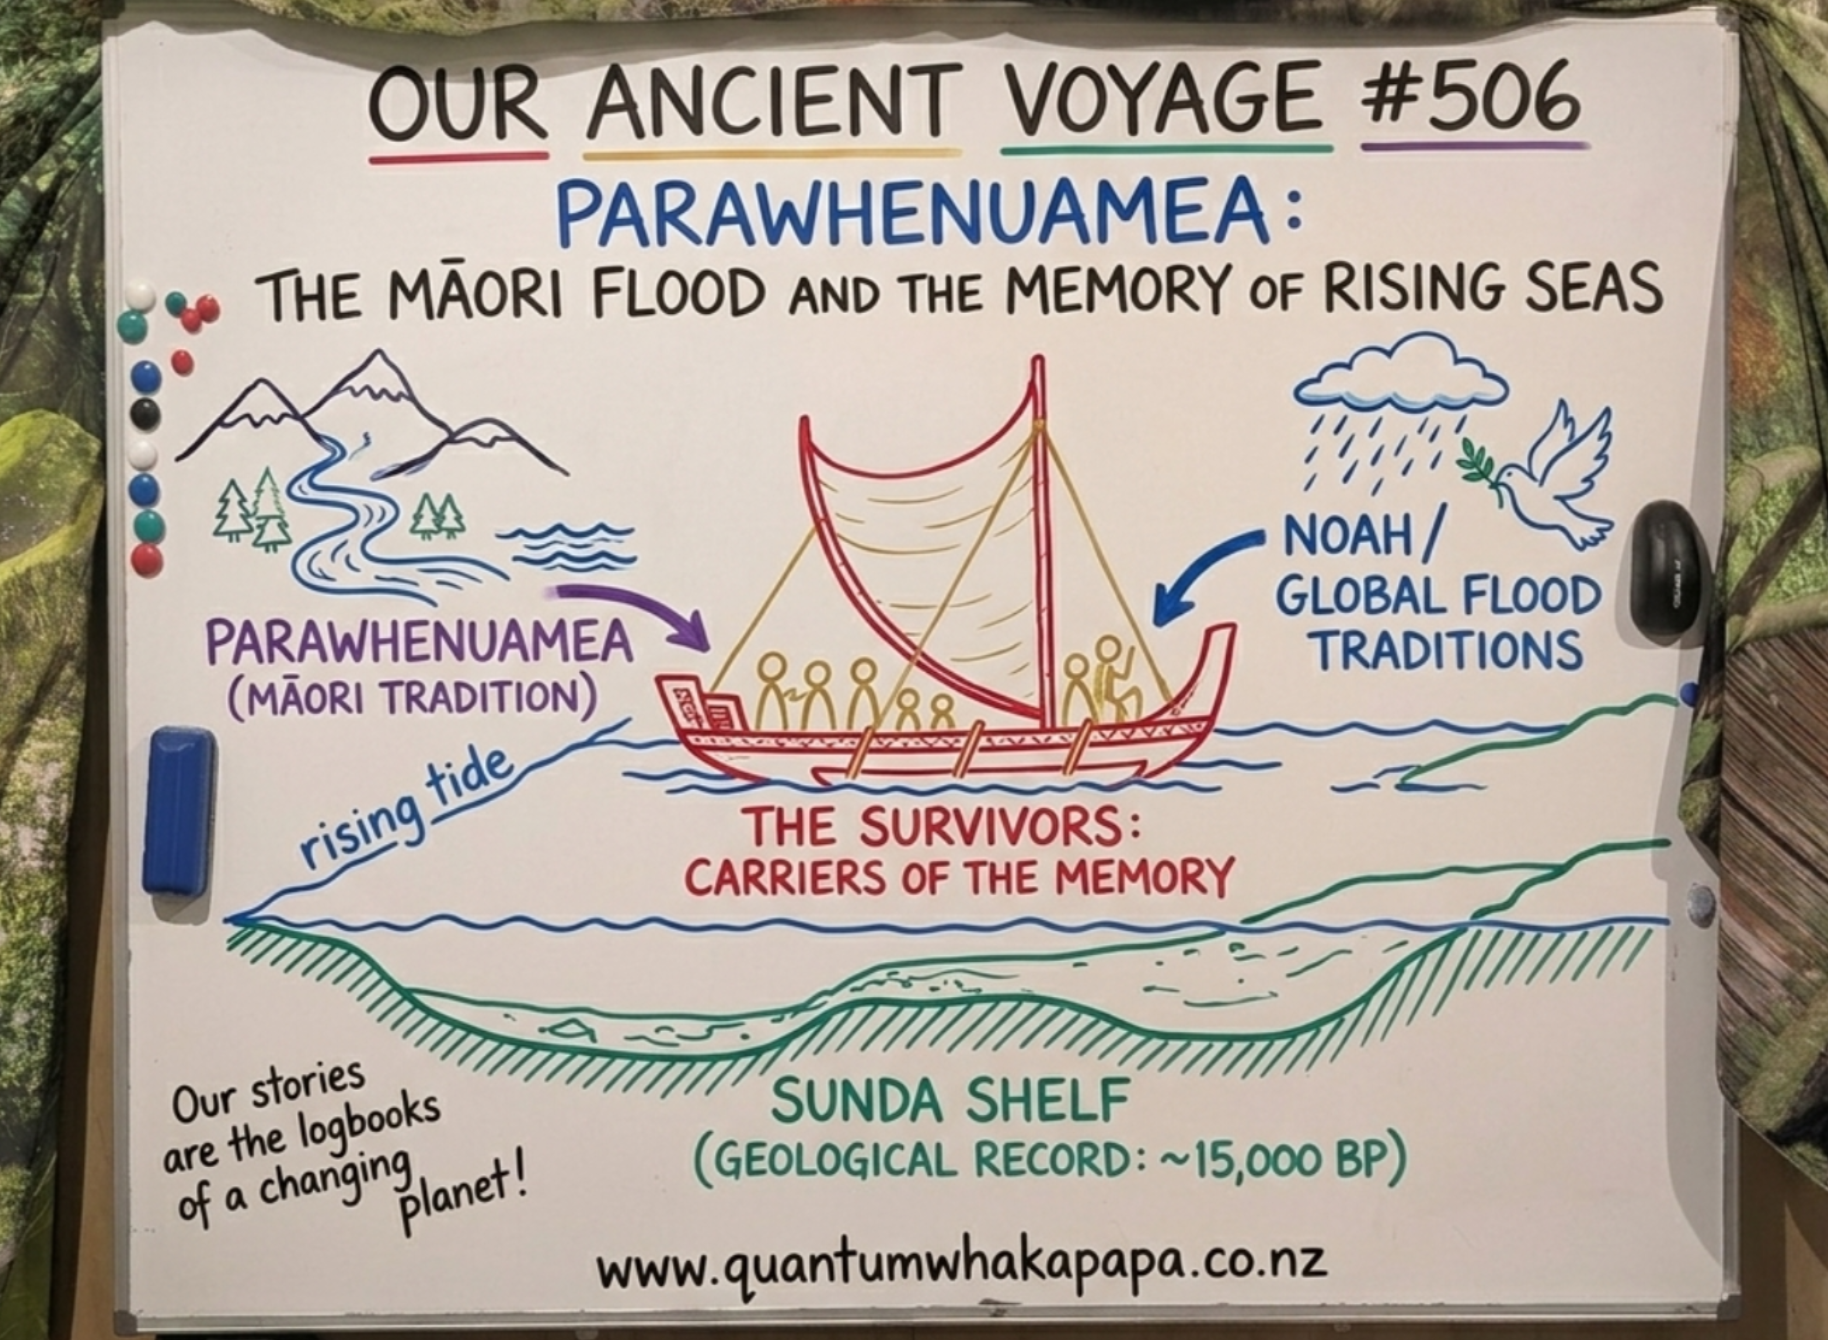 OUR ANCIENT VOYAGE #506
PARAWHENUAMEA:
THE MĀORI FLOOD AND THE MEMORY OF RISING SEAS
PARAWHENUAMEA
(MĀORI TRADITION)
NOAH/
GLOBAL FLOOD
TRADITIONS
rising tide
THE SURVIVORS:
CARRIERS OF THE MEMORY
SUNDA SHELF
(GEOLOGICAL RECORD: ~15,000 BP)
Our stories
are the logbooks
of a changing
planet!
www.quantumwhakapapa.co.nz